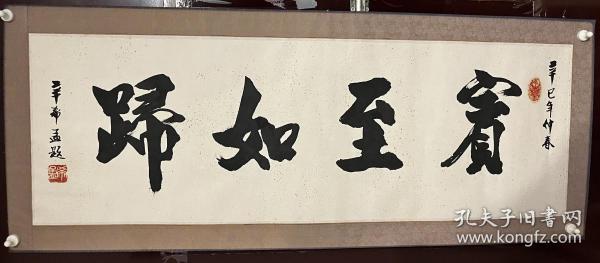 辛巳年仲春
賓至如歸
辛希孟題
孔夫子旧书网
www.kongfz.com